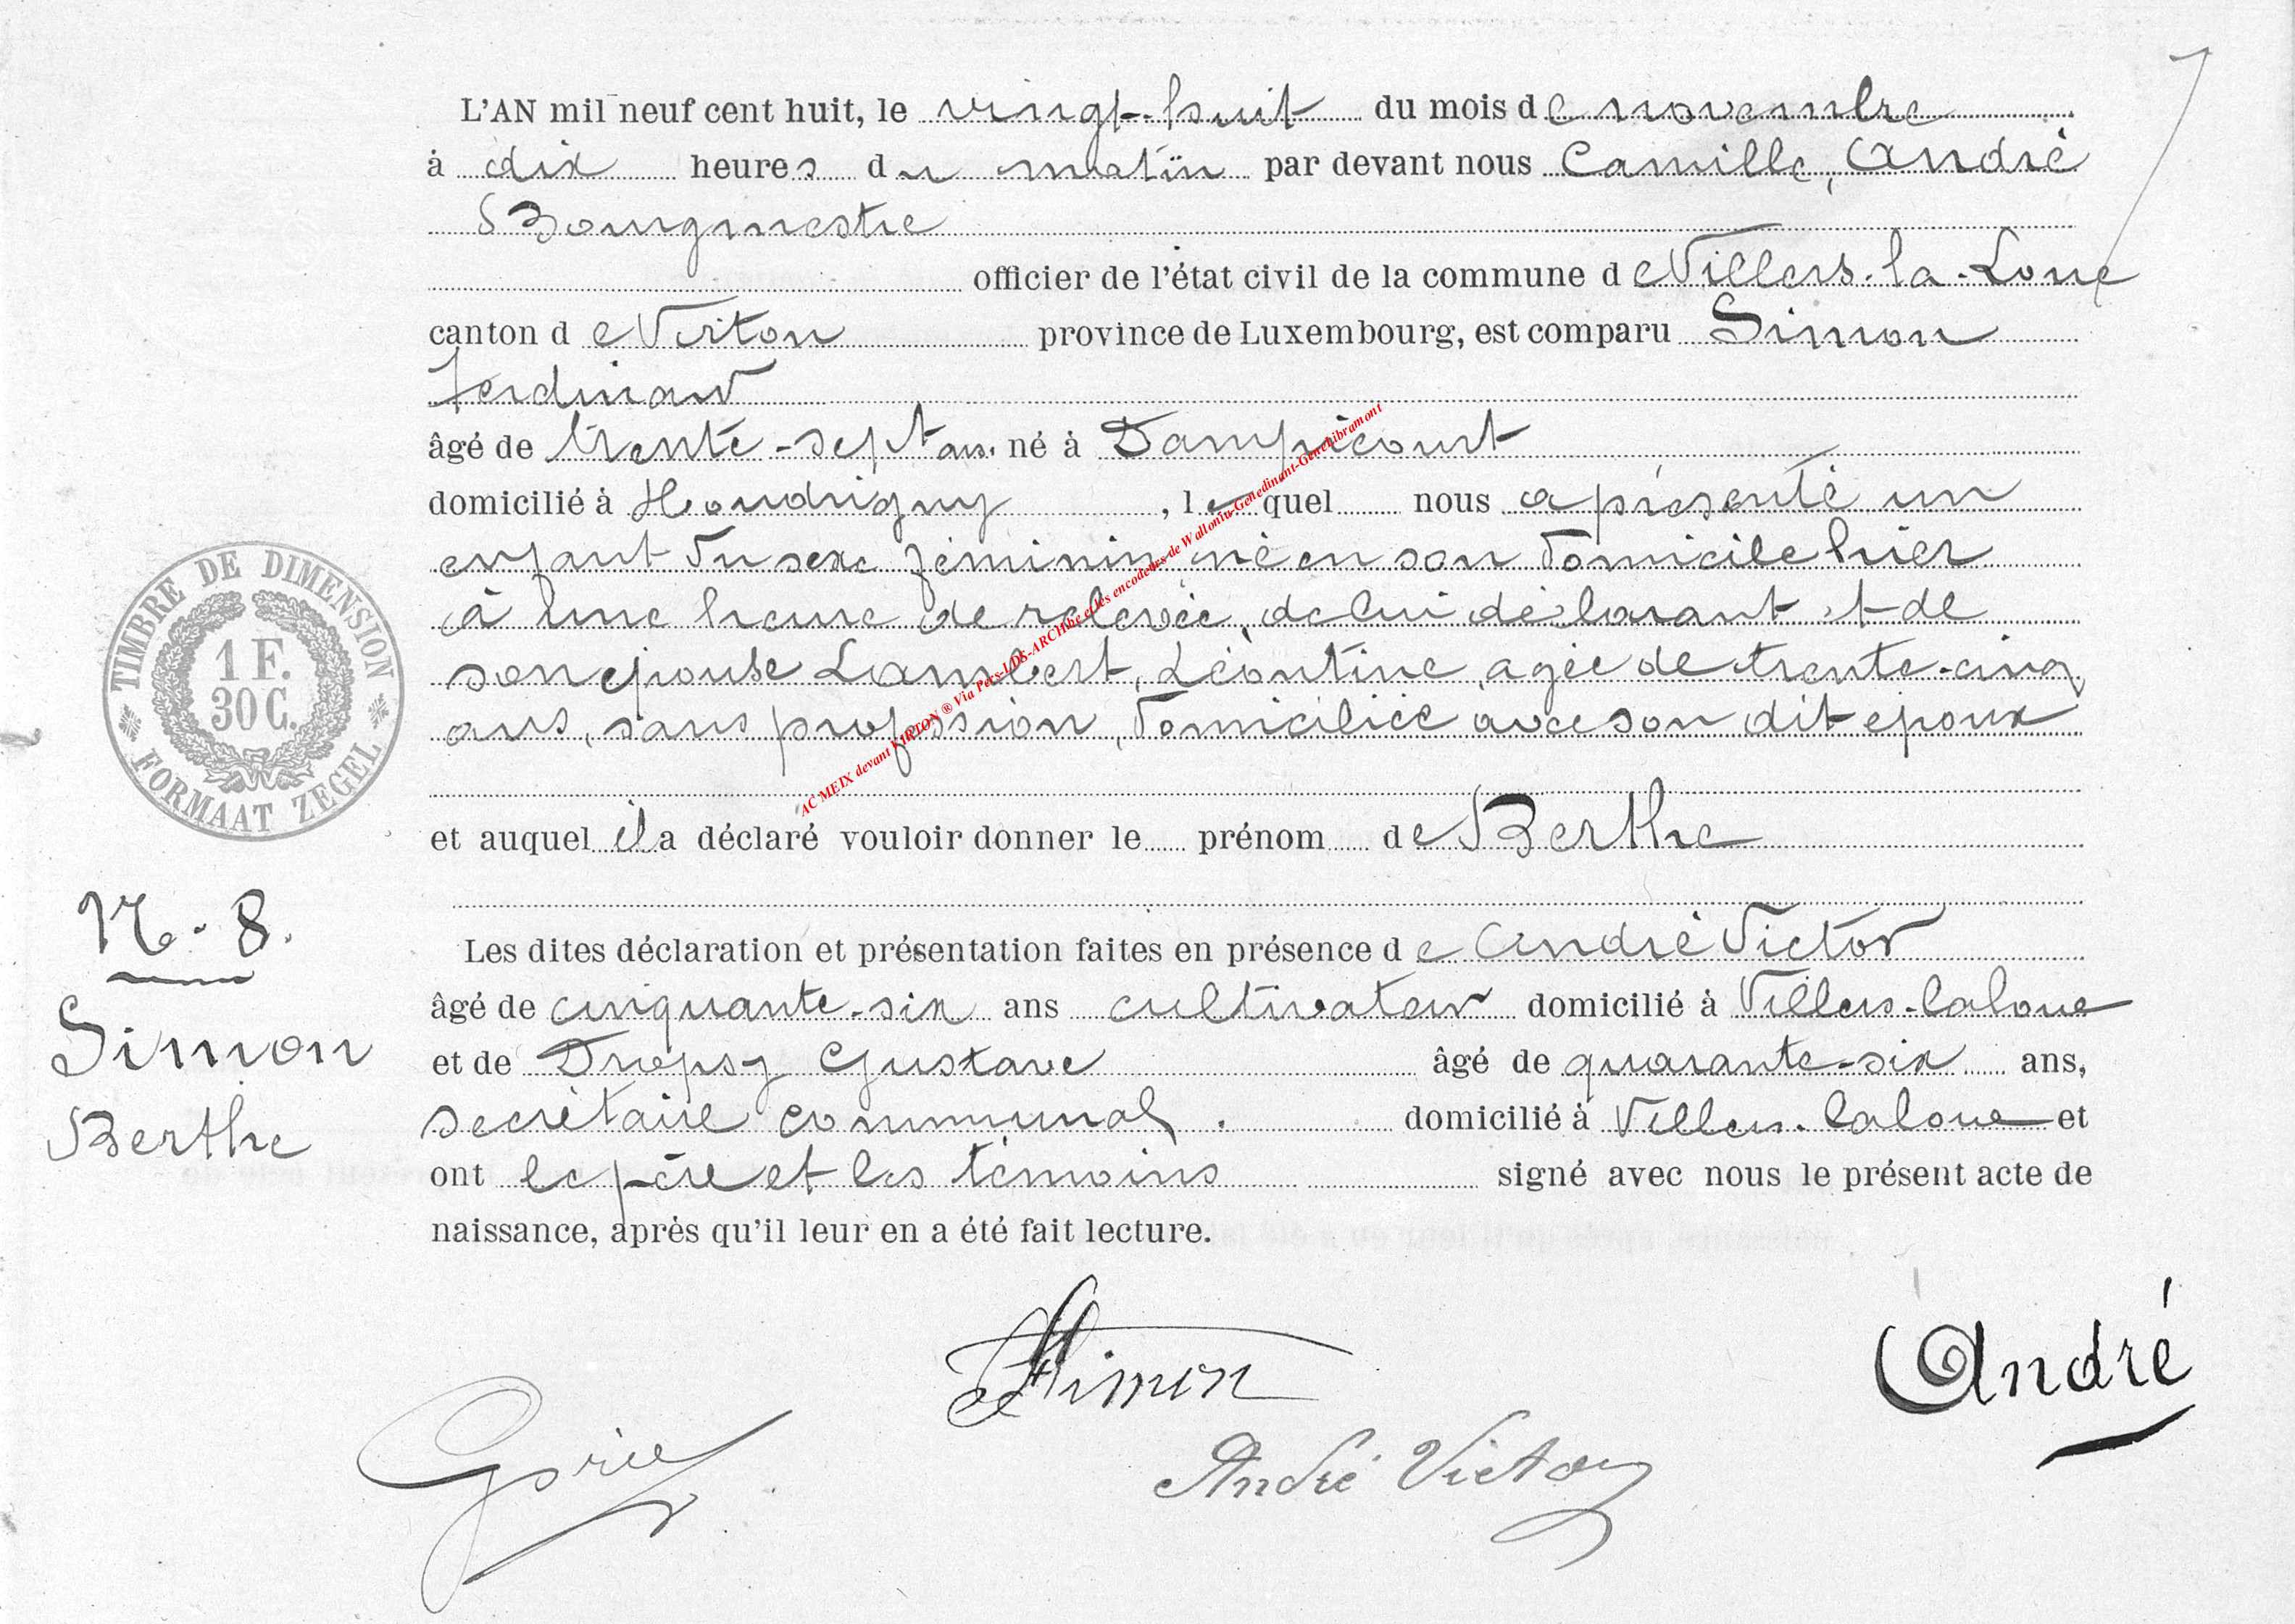 L'AN mil neuf cent huit, le vingt-huit du mois de novembre
à dix heures du matin par devant nous Camille, André
Bourgmestre
officier de l'état civil de la commune de Villers-la-Loue
canton de Virton province de Luxembourg, est comparu Simon
Ferdinand
âgé de trente-sept ans né à Dampicourt
domicilié à Houdrigny, lequel nous a présenté un
enfant du sexe féminin né en son domicile hier
à une heure de relevée, de lui déclarant et de
son épouse Lambert, Léontine, agée de trente-cinq
ans, sans profession, domiciliée avec son dit epoux
et auquel il a déclaré vouloir donner le prénom de Berthe
Les dites déclaration et présentation faites en présence de André Victor
âgé de cinquante-six ans cultivateur domicilié à Villers-laloue
et de Dropsy Gustave âgé de quarante-six ans,
secrétaire communal. domicilié à Villers-laloue et
ont le père et les témoins signé avec nous le présent acte de
naissance, après qu'il leur en a été fait lecture.
TIMBRE DE DIMENSION
1 F.
30 C.
FORMAAT ZEGEL
N. 8.
Simon
Berthe
AC MEIX devant VIRTON ® Via Pers-LDS-ARCHbe et les encodeurs de Wallonia-Genedinant-Genchibramont
Simon
André
André Victor